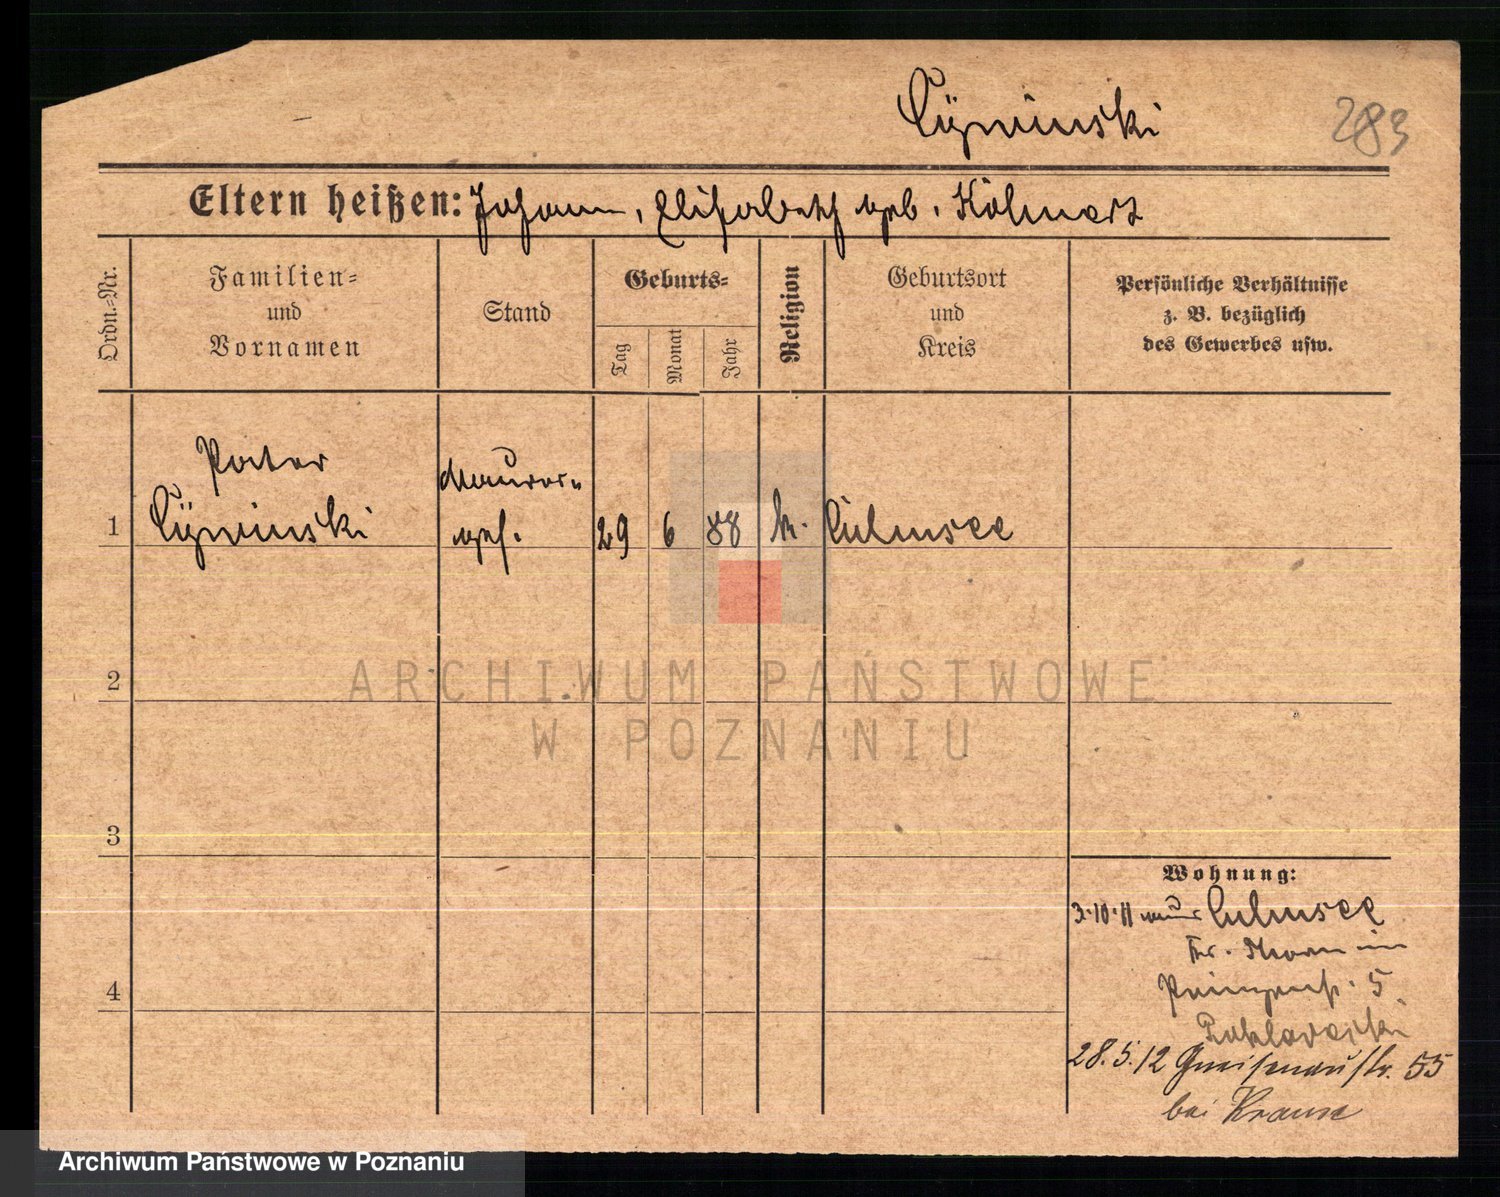 Cÿminski 283
Eltern heißen: Johann, Elisabeth geb. Kölmert
Ordn.-Nr.
Familien-
und
Vornamen
Stand
Geburts-
Tag
Monat
Jahr
Religion
Geburtsort
und
Kreis
Persönliche Verhältnisse
z. B. bezüglich
des Gewerbes usw.
Peter
Maurer-
1 Cÿminski ges. 29 6 88 k. Culmsee
2
ARCHIWUM PAŃSTWOWE
W POZNANIU
3
Wohnung:
3.10.11 Culmsee
Kr. Thorn
4
Prinzenst. 5
28.5.12 Gneisenaustr. 55
bei Krause
Archiwum Państwowe w Poznaniu